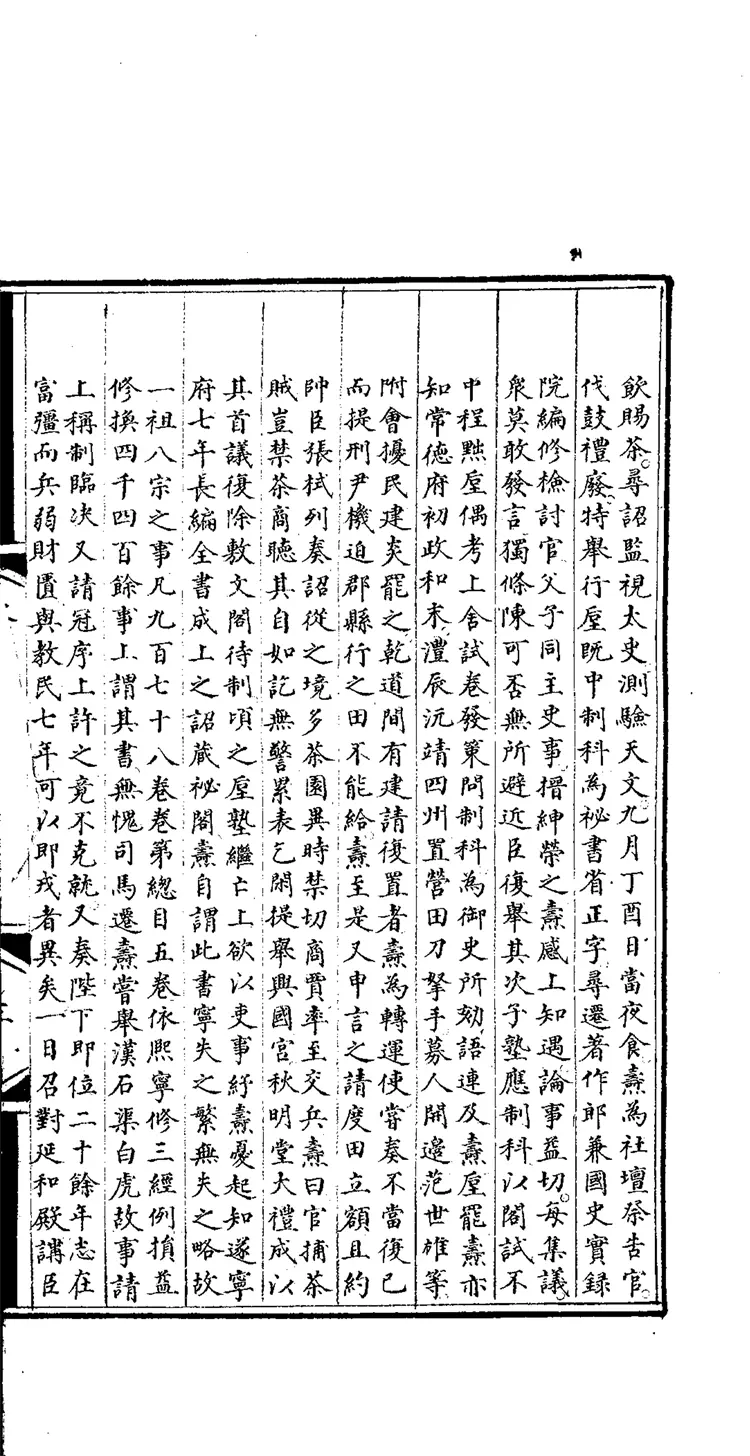 飲賜茶。尋詔監視太史測驗天文九月丁酉日當夜食燾為社壇祭告官。
伐鼓禮廢特舉行垕既中制科為祕書省正字尋遷著作郎兼國史實錄
院編修檢討官父子同主史事搢紳榮之燾感上知遇論事益切。每集議。
衆莫敢發言獨條陳可否無所避近臣復舉其次子塾應制科以閣試不
中程黜垕偶考上舍試卷發策問制科為御史所劾語連及燾垕罷燾亦
知常德府初政和末澧辰沅靖四州置營田刀拏手募人開邊范世雄等
附會擾民建炎罷之乾道間有建請復置者燾為轉運使嘗奏不當復已
而提刑尹機迫郡縣行之田不能給燾至是又申言之請度田立額且約
帥臣張栻列奏詔從之境多茶園異時禁切商賈率至交兵燾曰官捕茶
賊豈禁茶商聽其自如訖無警累表乞閑提舉興國宮秋明堂大禮成以
其首議復除敷文閣待制頃之垕塾繼亡上欲以吏事紓燾憂起知遂寧
府七年長編全書成上之詔藏祕閣燾自謂此書寧失之繁無失之略故
一祖八宗之事凡九百七十八卷卷第總目五卷依熙寧修三經例損益
修換四千四百餘事上謂其書無愧司馬遷燾嘗舉漢石渠白虎故事請
上稱制臨决又請冠序上許之竟不克就又奏陛下即位二十餘年志在
富彊而兵弱財匱與教民七年可以即戎者異矣一日召對延和殿講臣